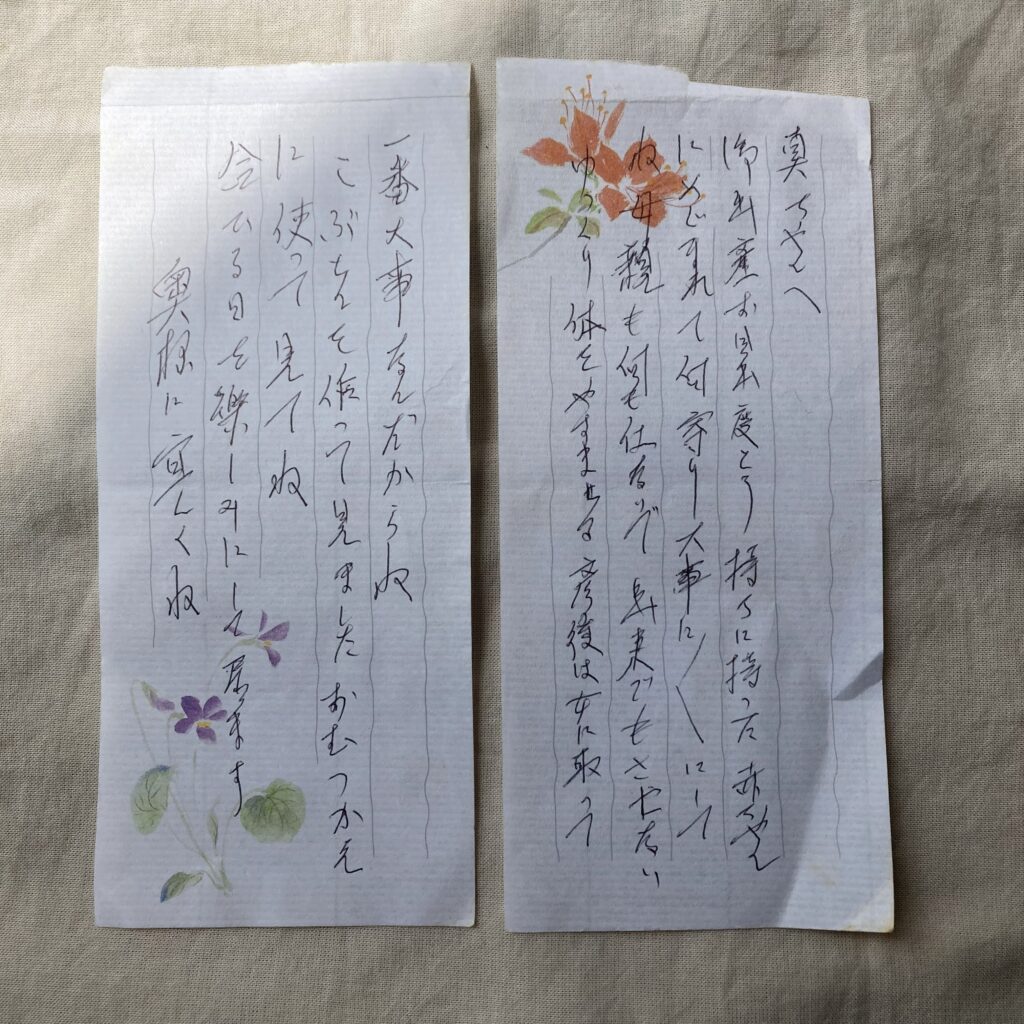 真ちやんへ
御出産お目出度とう 待ちに待った 赤ちゃん
にめぐまれて何寄り大事に〳〵にして
ね母親も何も仕ないで 出来でもさせない
ゆっくり体をやすませる 産後は女に取って
一番大事なんだからね
こぶとんを作って見ました おむつかえ
に使って見てね
会ひる日を樂しみにして居ます
奥様に宜しくね